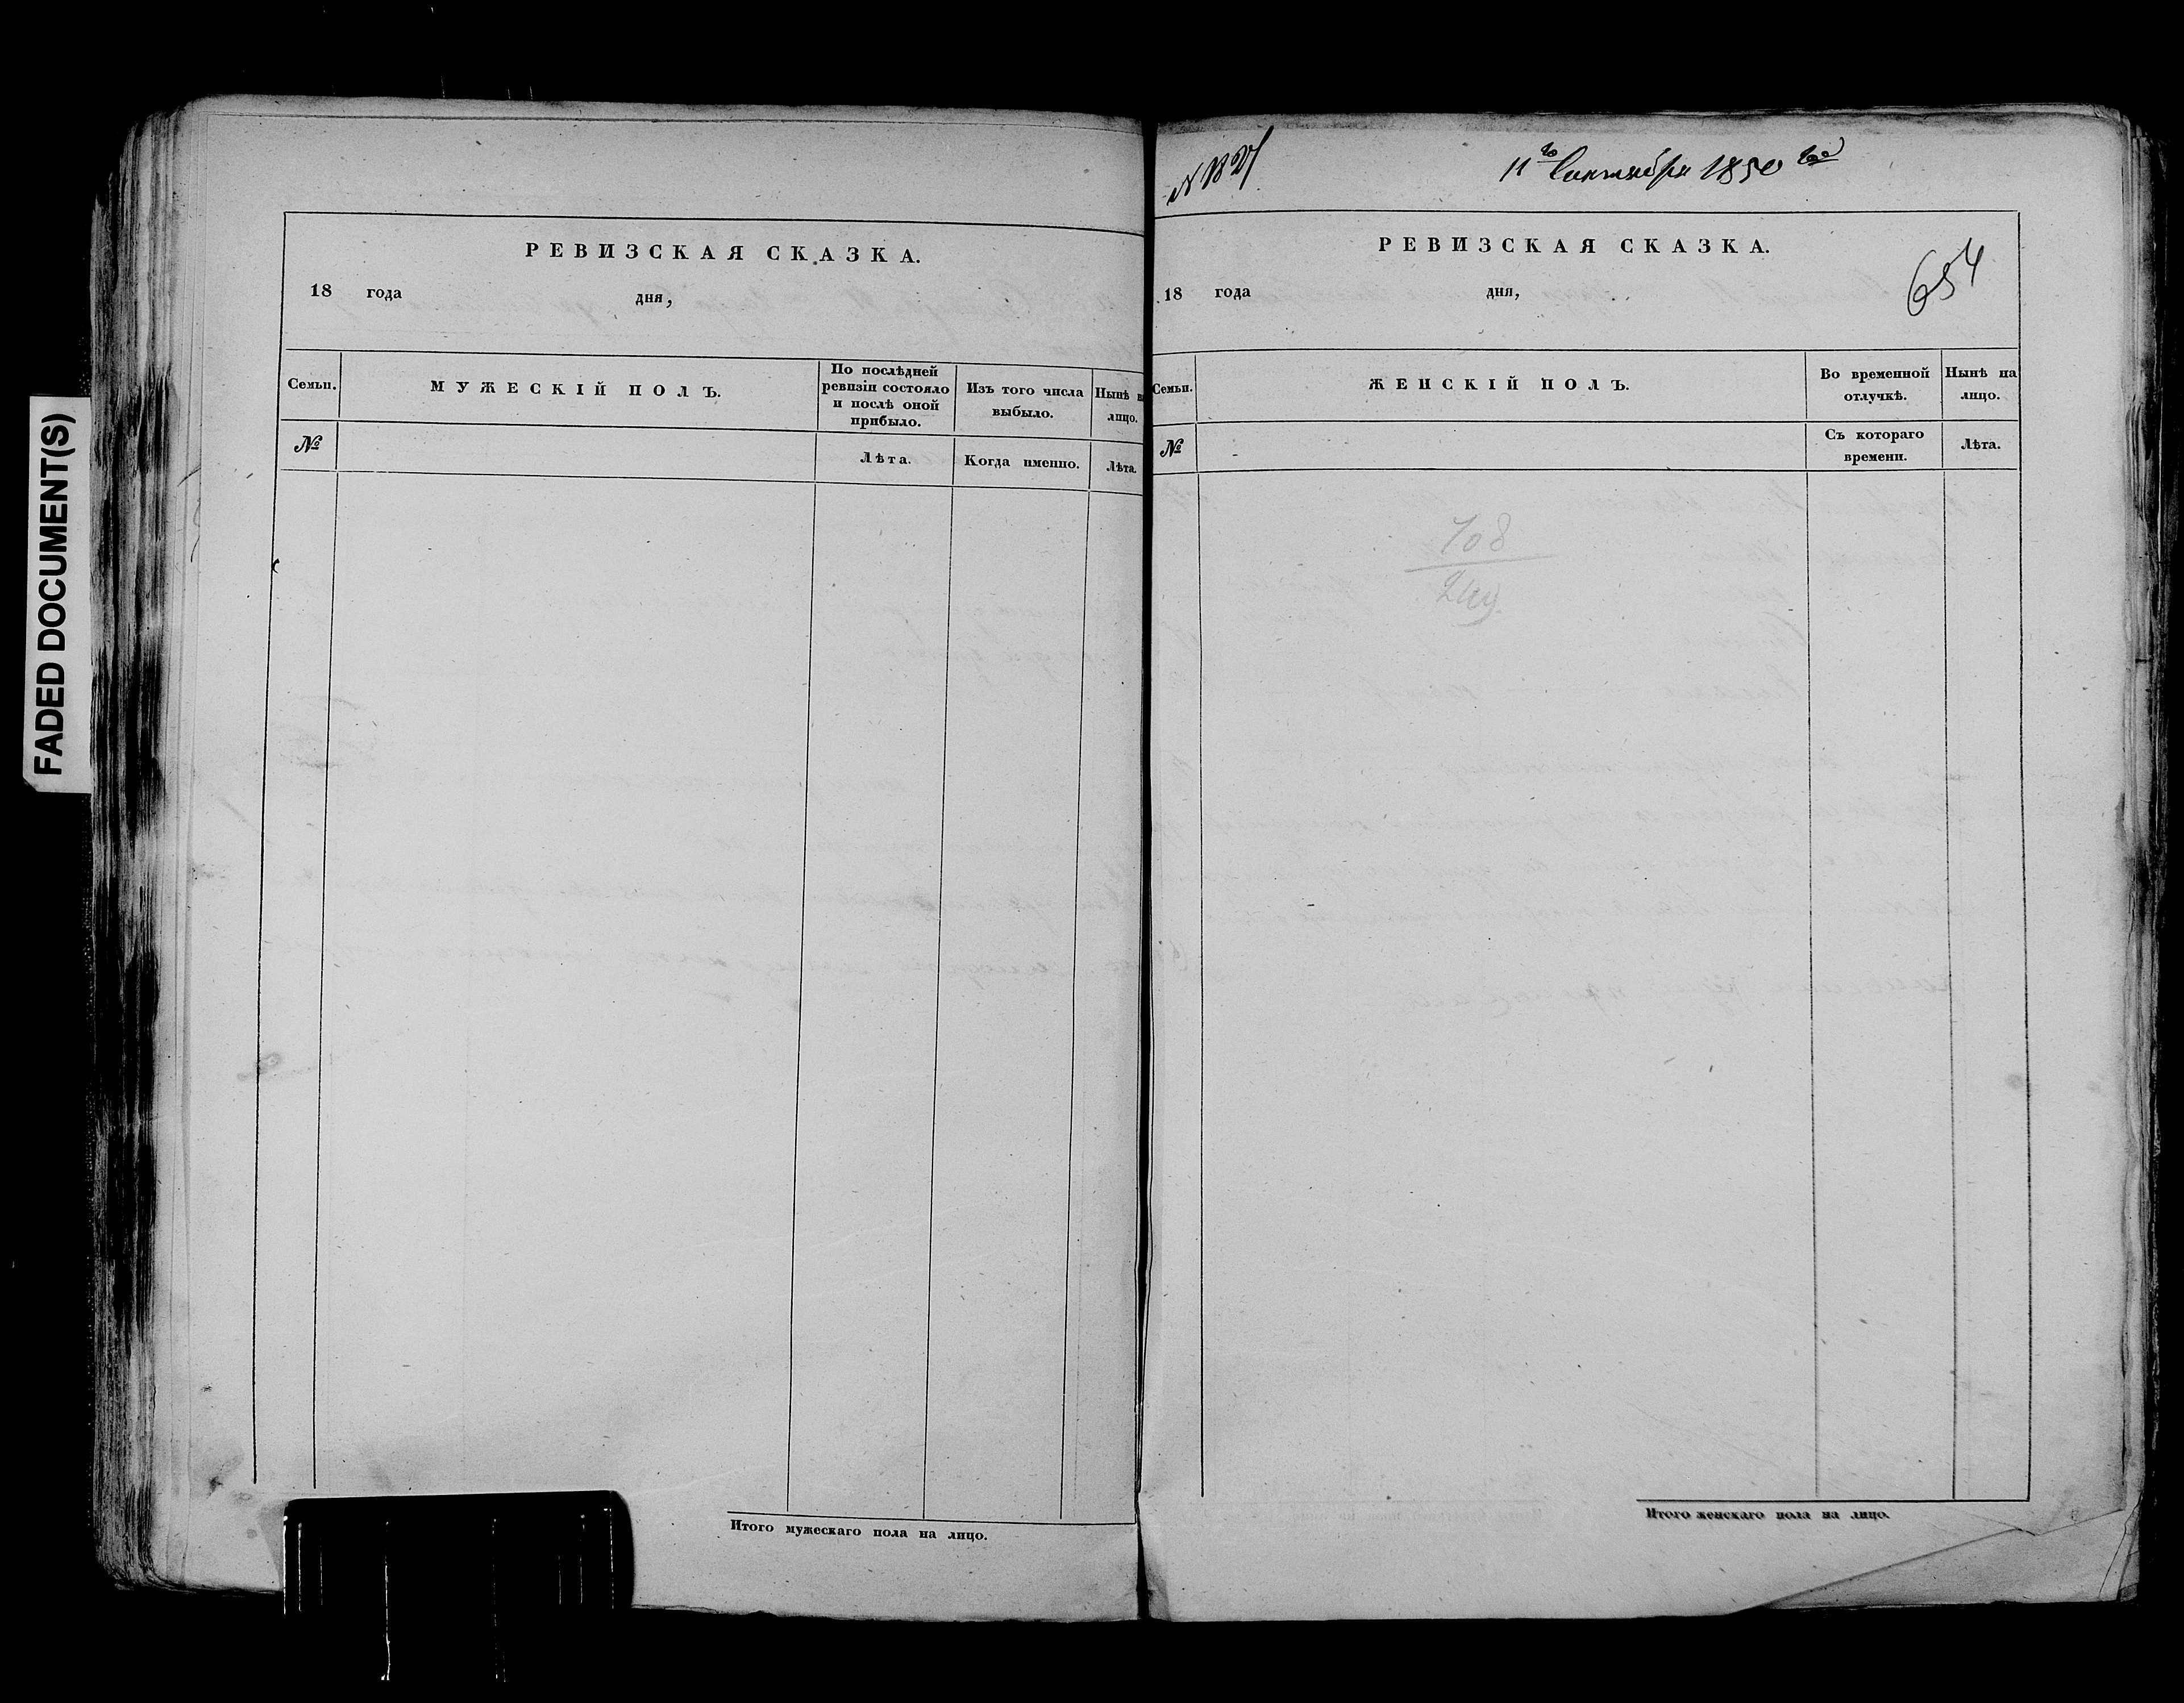 FADED DOCUMENT(S)
РЕВИЗСКАЯ СКАЗКА.
18 года дня,
Семьи.
МУЖЕСКІЙ ПОЛЪ.
По послѣдней
ревизіи состояло
и послѣ оной
прибыло.
Изъ того числа
выбыло.
Нынѣ на
лицо.
№
Лѣта.
Когда именно.
Лѣта.
Итого мужескаго пола на лицо.
11го Сентября 1850 года
РЕВИЗСКАЯ СКАЗКА.
654
18 года дня,
Семьи.
ЖЕНСКІЙ ПОЛЪ.
Во временной
отлучкѣ.
Нынѣ на
лицо.
№
Съ котораго
времени.
Лѣта.
108
Итого женскаго пола на лицо.